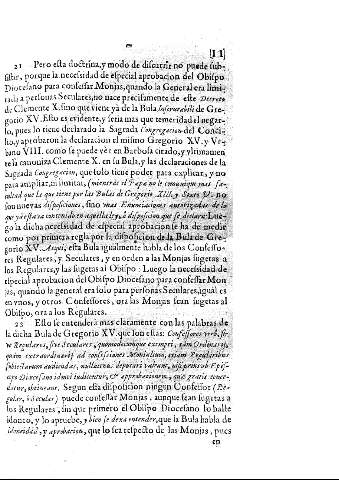 [11]
21 Pero esta doctrina, y modo de discurrir no puede sub-
sistir, porque la necessidad de especial aprobacion del Obispo
Diocesano para confessar Monjas, quando la General era limi-
tada a personas Seculares, no nace precisamente de este Decreto
de Clemente X. sino que viene yà de la Bula Inscrutabili de Gre-
gorio XV. Esto es evidente, y seria mas que temeridad el negar-
lo, pues lo tiene declarado la Sagrada Congregacion del Conci-
lio, y aprobaron la declaracion el mismo Gregorio XV. y Vr-
bano VIII. como se puede vèr en Barbosa citado, y vltimamen-
te la canoniza Clemente X. en su Bula, y las declaraciones de la
Sagrada Congregacion, que solo tiene poder para explicar, y no
para ampliar, ni limitar, (mientras el Papa no le comunique mas fa-
cultad que la que tiene por las Bulas de Gregorio XIII. y Sixto V.) no
son nuevas disposiciones, sino mas Enunciaciones autorizadas de lo
que yà estava contenido en aquella ley, ò disposicion que se declara: Lue-
go la dicha necessidad de especial aprobacion se ha de medir
como por primera regla por la disposicion de la Bula de Gre-
gorio XV. Assi, esta Bula igualmente habla de los Confesso-
res Regulares, y Seculares, y en orden a las Monjas sugetas a
los Regulares, y las sugetas al Obispo: Luego la necessidad de
especial aprobacion del Obispo Diocesano para confessar Mon
jas, quando la general era solo para personas Seculares, igual es
en vnos, y otros Confessores, ora las Monjas sean sugetas al
Obispo, ora a los Regulares.
22 Esto se entenderà mas claramente con las palabras de
la dicha Bula de Gregorio XV. que son estas: Confessores verò, si-
ve Regulares, sive Seculares, quomodocumque exempti, tam Ordinarij,
quàm extraordinarij ad confessiones Monialium, etiam Regularibus
subiectarum audiendas, nullatenus deputari valeant, nisi prius ab Epis-
copo Diocesano idonei iudicentur, & approbationem, quæ gratis conce-
datur, obtineant. Segun esta disposicion ningun Confessor (Re-
gular, ò Secular) puede confessar Monjas, aunque sean sugetas a
los Regulares, sin que primero el Obispo Diocesano lo halle
idoneo, y lo apruebe, y bien se dexa entender, que la Bula habla de
idoneidad, y aprobacion, que lo sea respecto de las Monjas, pues
en